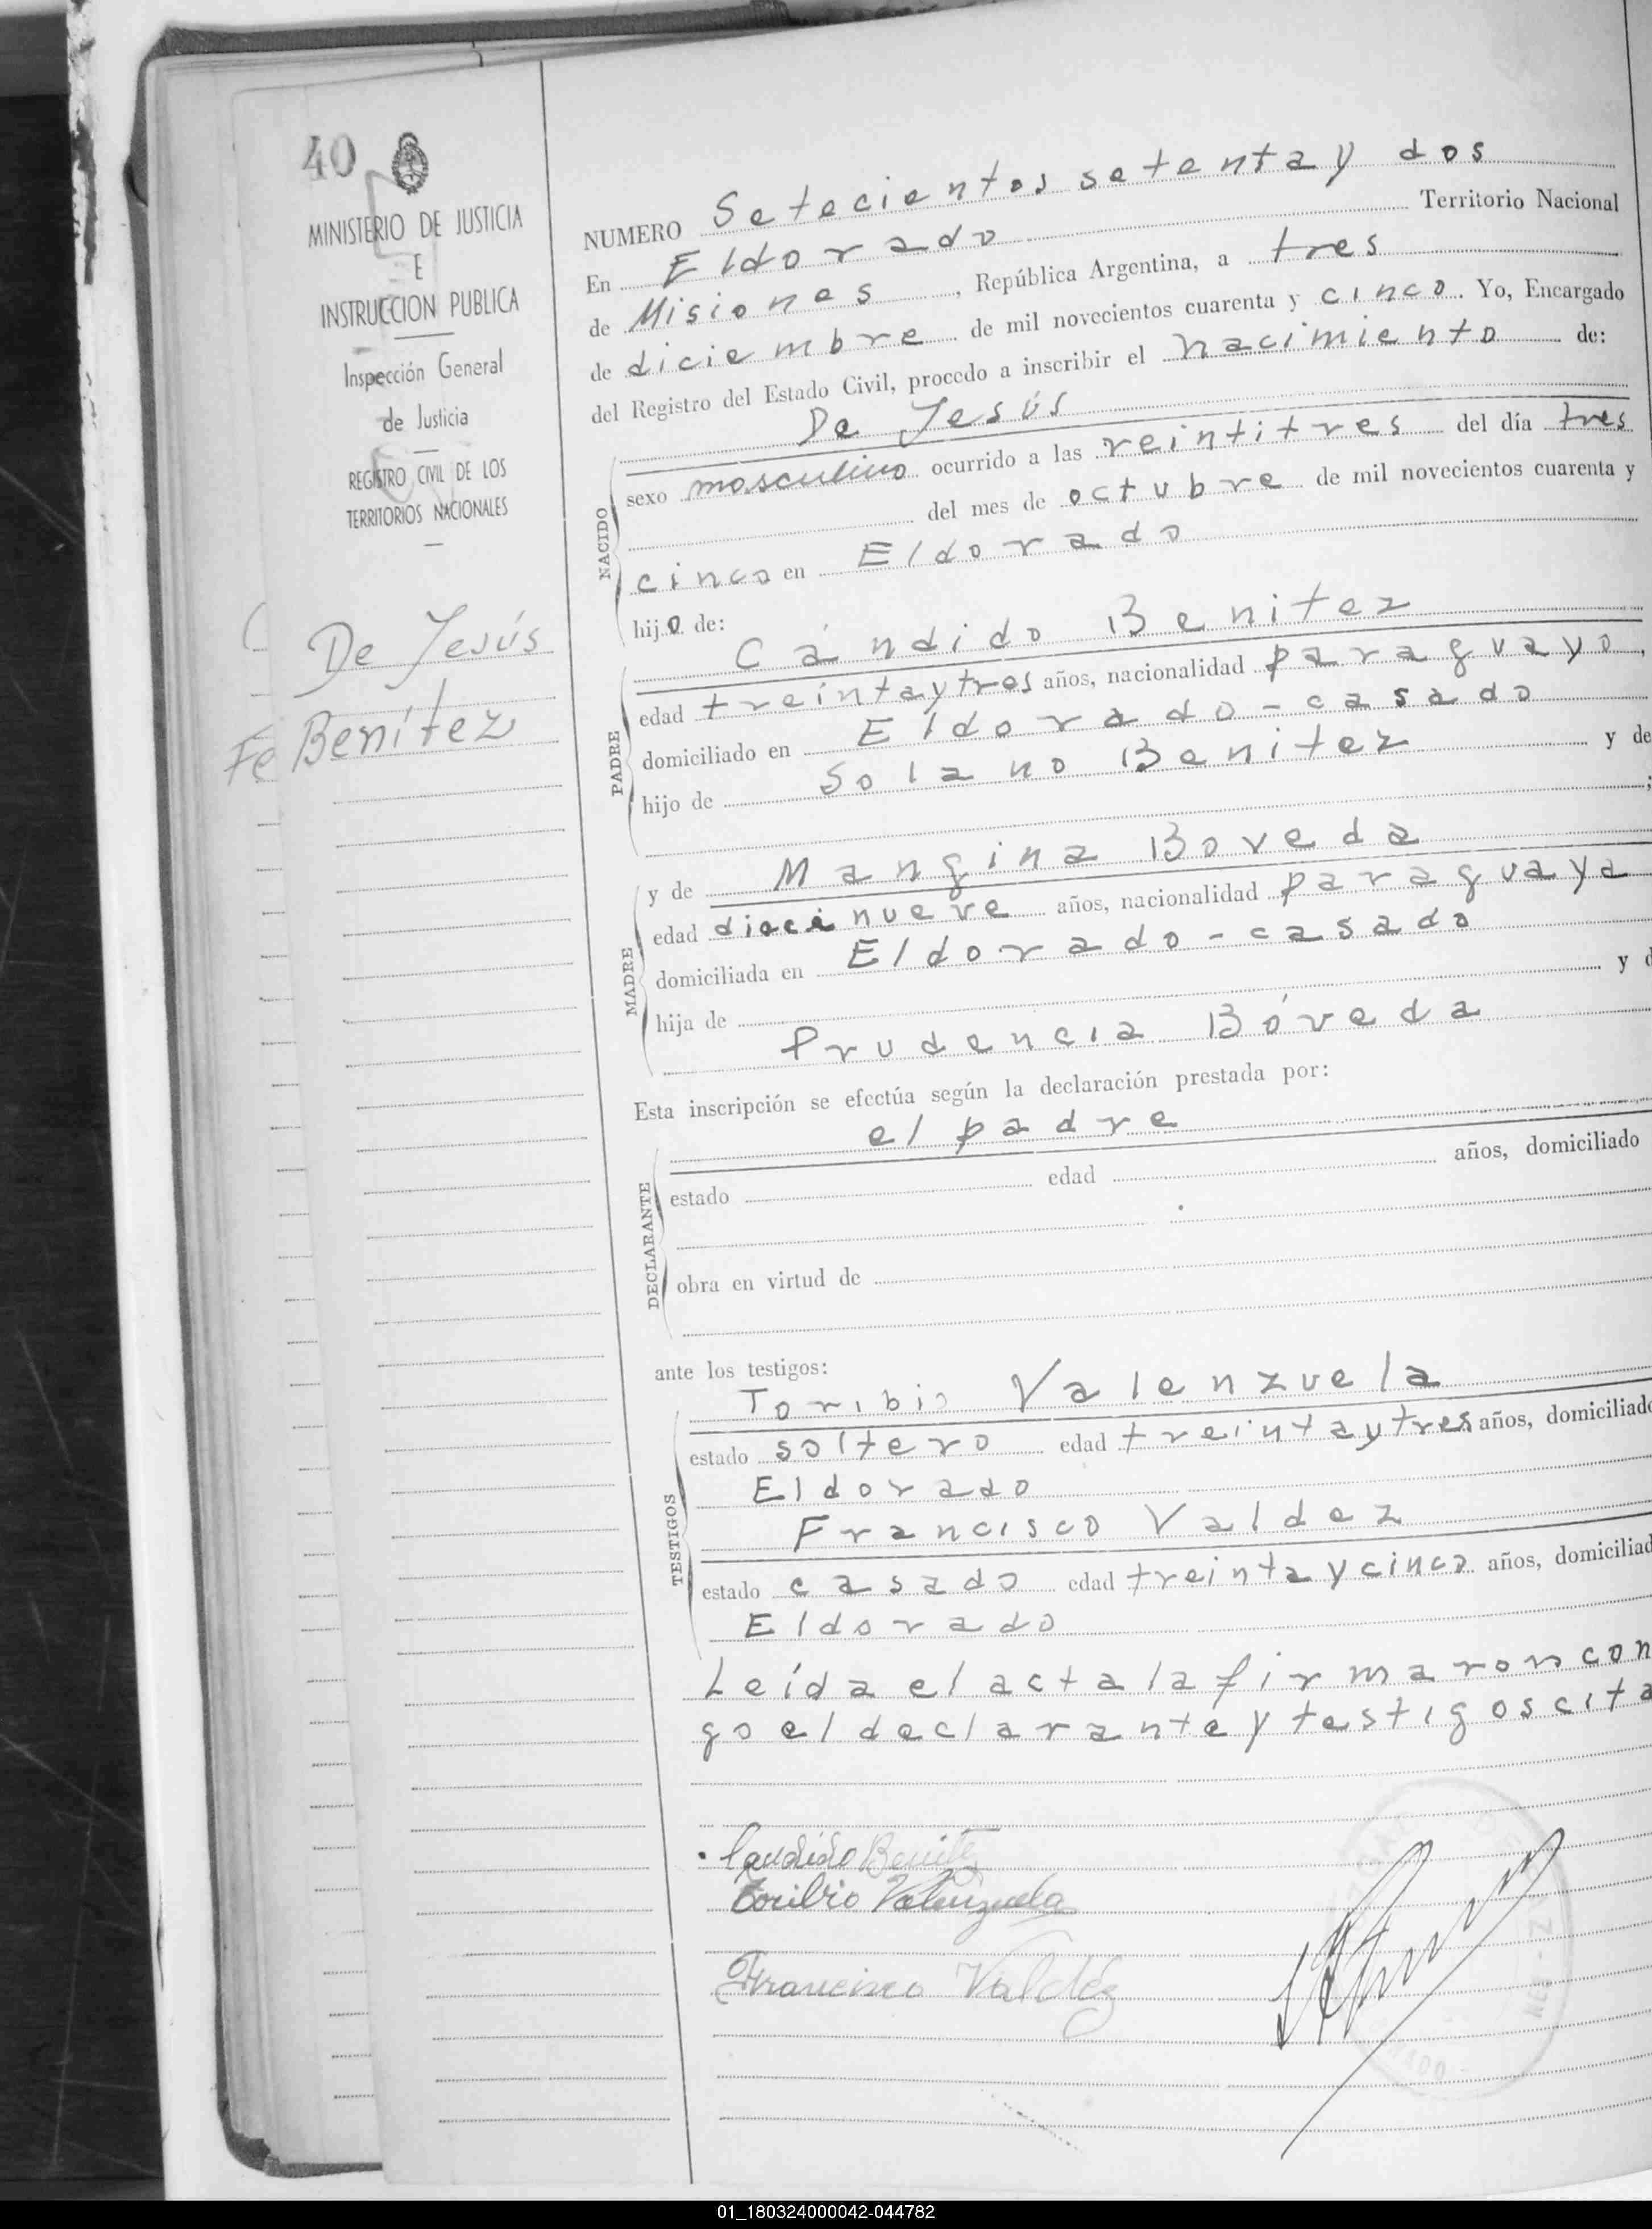 40
MINISTERIO DE JUSTICIA
E
INSTRUCCION PUBLICA
Inspección General
de Justicia
REGISTRO CIVIL DE LOS
TERRITORIOS NACIONALES
De Jesús
Fe Benítez
NUMERO Setecientos setenta y dos
En Eldorado Territorio Nacional
de Misiones, República Argentina, a tres
de diciembre de mil novecientos cuarenta y cinco. Yo, Encargado
del Registro del Estado Civil, procedo a inscribir el nacimiento de:
De Jesús
NACIDO
sexo masculino ocurrido a las veintitres del día tres
del mes de octubre de mil novecientos cuarenta y
cinco en Eldorado
hijo de:
Cándido Benitez
PADRE
edad treintaytres años, nacionalidad paraguayo,
domiciliado en Eldorado - casado
hijo de Solano Benitez y de
;
y de Mangina Boveda
MADRE
edad diecinueve años, nacionalidad paraguaya
domiciliada en Eldorado - casado
hija de y d
Prudencia Bóveda
Esta inscripción se efectúa según la declaración prestada por:
el padre
DECLARANTE
estado edad años, domiciliado
obra en virtud de
ante los testigos:
Toribio Valenzuela
TESTIGOS
estado soltero edad treintaytres años, domiciliado
Eldorado
Francisco Valdez
estado casado edad treinta y cinco años, domiciliad
Eldorado
Leída el acta la firmaron con
go el declarante y testigos cita
Candido Benitez
Toribio Valenzuela
Francisco Valdéz
01_180324000042-044782